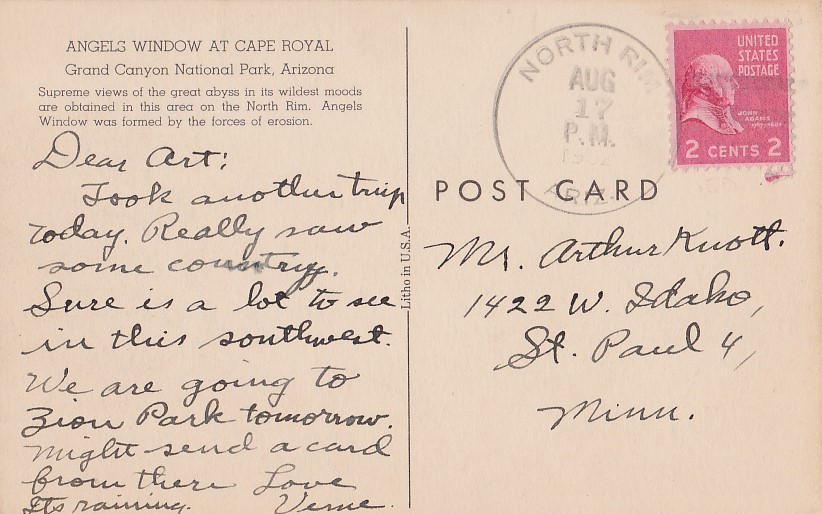 ANGELS WINDOW AT CAPE ROYAL
Grand Canyon National Park, Arizona
Supreme views of the great abyss in its wildest moods
are obtained in this area on the North Rim. Angels
Window was formed by the forces of erosion.
Dear Art:
Took another trip
today. Really saw
some country.
Sure is a lot to see
in this southwest.
We are going to
Zion Park tomorrow.
Might send a card
from there Love
Its raining. Verne.
Litho in U.S.A.
NORTH RIM
AUG
17
P.M.
ARIZ.
UNITED
STATES
POSTAGE
JOHN
ADAMS
2 CENTS 2
POST CARD
Mr. Arthur Knott.
1422 W. Idaho,
St. Paul 4,
Minn.